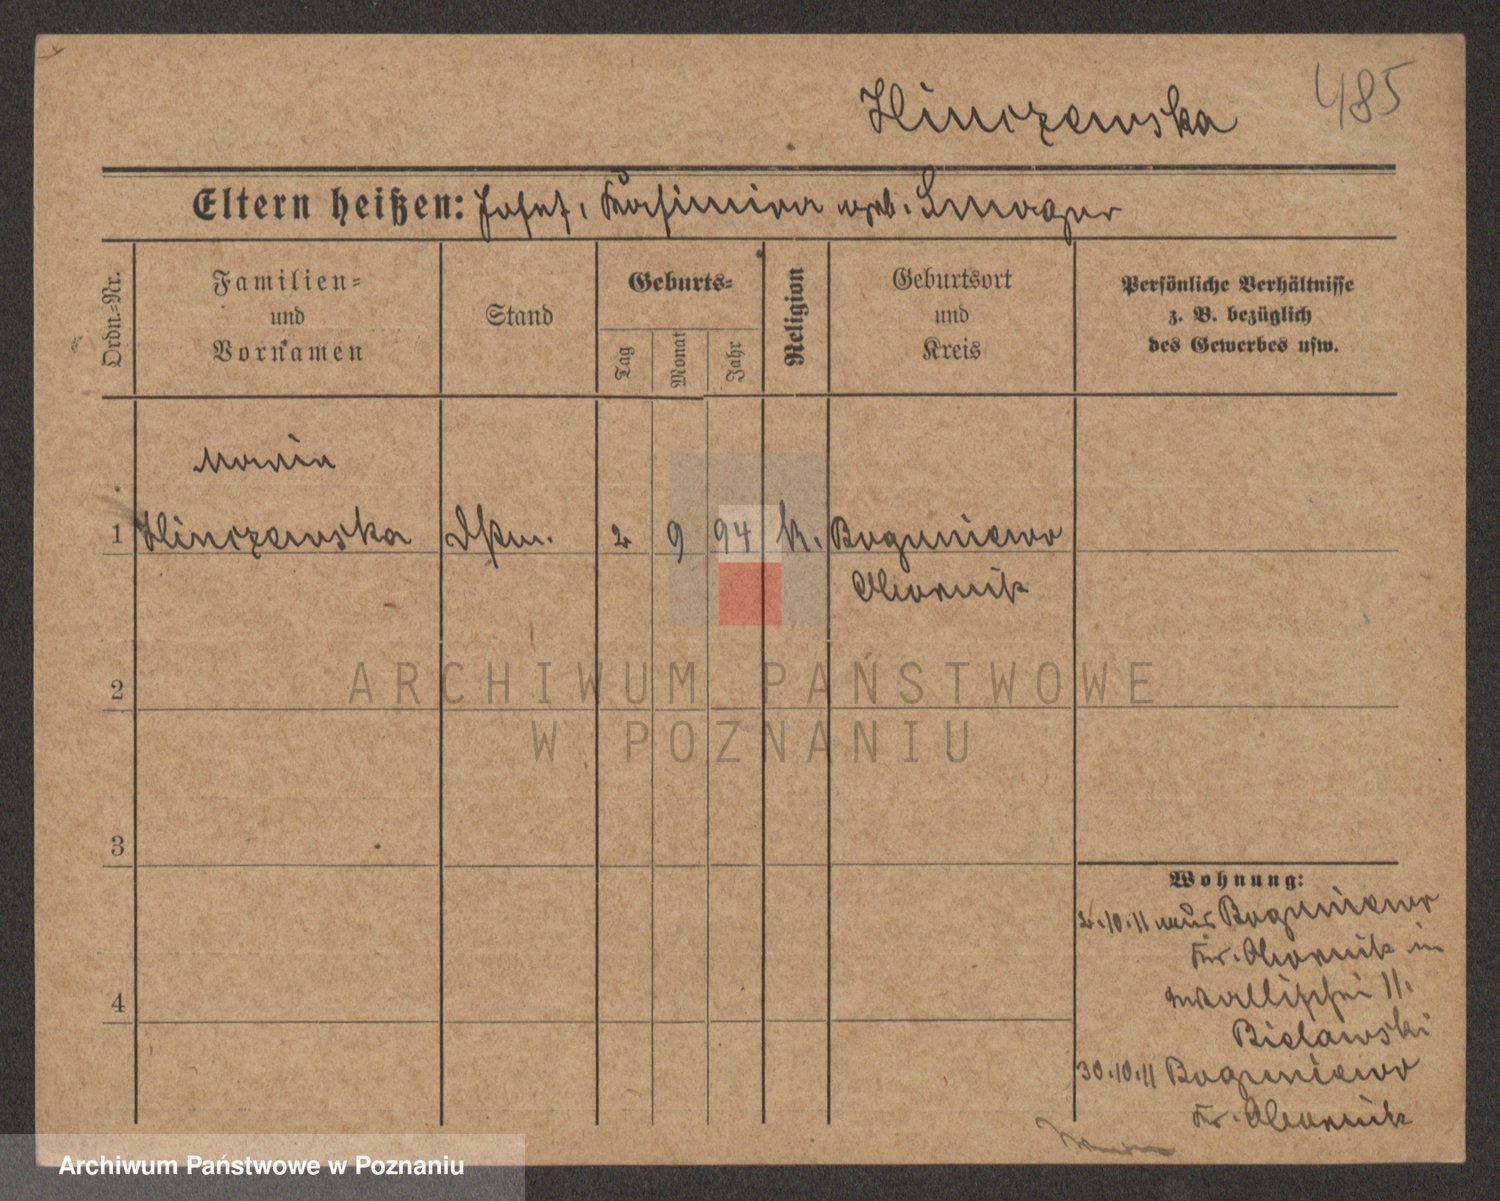 485
Hinczewska
Eltern heißen: Josef, Kasimira geb. Smoger
Ordn.-Nr.
Familien-
und
Vornamen
Stand
Geburts-
Tag
Monat
Jahr
Religion
Geburtsort
und
Kreis
Persönliche Verhältnisse
z. B. bezüglich
des Gewerbes usw.
Maria
1 Hinczewska Dstm. 2 9 94 k. Boguniewo
Obornik
2
3
4
Wohnung:
2.10.11 aus Boguniewo
Kr. Obornik in
Wallischei 11.
Bielawski
30.10.11 Boguniewo
Kr. Obornik
ARCHIWUM PAŃSTWOWE
W POZNANIU
Archiwum Państwowe w Poznaniu